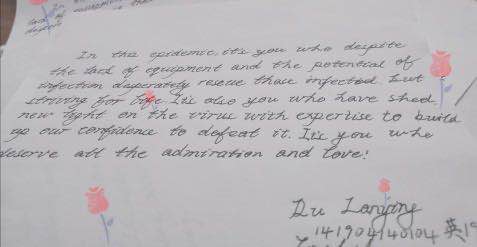 In the epidemic, it's you who despite
the lack of equipment and the potential of
infection desperately rescue those infected but
striving for hope. It's also you who have shed
new light on the virus with expertise to build
up our confidence to defeat it. It's you who
deserve all the admiration and love!
Du Lanjing
141904140104 英